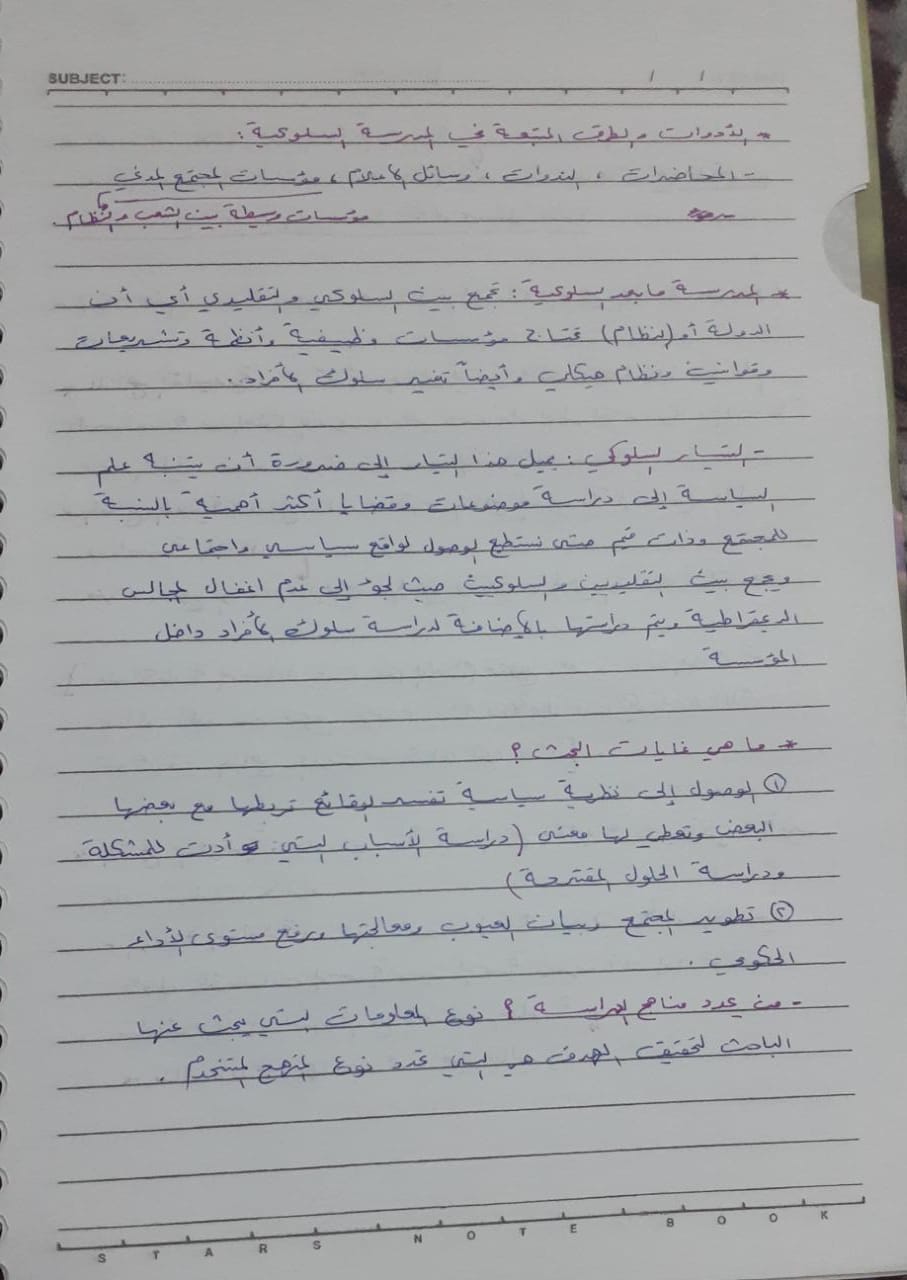 SUBJECT: / /
* الأدوات والطرق المتبعة في المدرسة السلوكية :
- المحاضرات ، الندوات ، وسائل الإعلام ، مؤسسات المجتمع المدني
مؤسسات وسيطة بين الشعب والنظام.
* المدرسة ما بعد السلوكية : تجمع بين السلوكي والتقليدي أي أن
الدولة أو (النظام) تحتاج مؤسسات وظيفية وأنظمة وتشريعات
وقوانين ونظام هيكلي وأيضاً تفسير سلوك الأفراد .
- التيار السلوكي : يميل هذا التيار إلى ضرورة أن يتنبه علم
السياسة إلى دراسة موضوعات وقضايا أكثر أهمية بالنسبة
للمجتمع وذات قيم حتى نستطيع الوصول لواقع سياسي واجتماعي
ويجمع بين التقليديين والسلوكيين حيث لجؤ إلى عدم اغفال المجالس
الديمقراطية ويتم دراستها بالإضافة لدراسة سلوك الأفراد داخل
المؤسسة
* ما هي غايات البحث ؟
① الوصول إلى نظرية سياسية تفسر الوقائع تربطها مع بعضها
البعض وتعطي لها معنى (دراسة الأسباب التي أدت للمشكلة
ودراسة الحلول المقترحة)
② تطوير المجتمع وبيان العيوب ومعالجتها ورفع مستوى الأداء
الحكومي .
- من يحدد مناهج الدراسة ؟ نوع المعلومات التي يبحث عنها
الباحث لتحقيق الهدف هي التي تحدد نوع المنهج المستخدم .
STARS NOTE BOOK